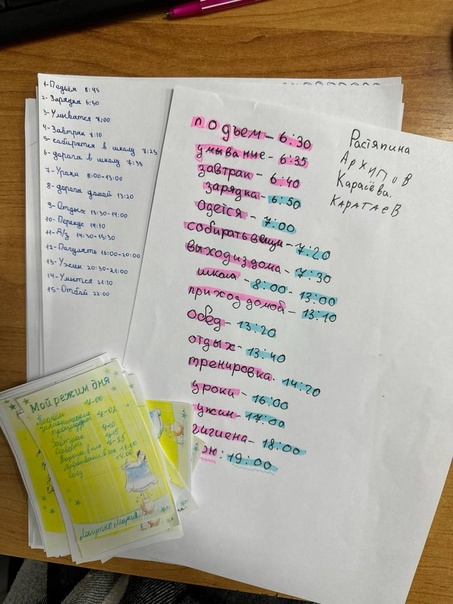 1-Подъём 6:45
2-Зарядка 6:50
3-Умывание 7:00
4-Завтрак 7:10
5-собираться в школу 7:25
6-дорога в школу 7:35
7-Уроки 8:00-13:00
8-дорога домой 13:20
9-Отдых 13:30-14:00
10-Перекус 14:10
11-Д/з 14:30-15:30
12-Погулять 16:00-20:00
13-Ужин 20:30-21:00
14-Умыться 21:10
15-Отбой 22:00
подъем - 6:30
умывание - 6:35
завтрак - 6:40
зарядка - 6:50
одется - 7:00
собирать вещи - 7:20
выход из дома - 7:30
школа - 8:00 - 13:00
приход домой - 13:10
обед - 13:20
отдых - 13:40
тренировка - 14:20
уроки - 16:00
ужин - 17:00
гигиена - 18:00
сон: 19:00
Растяпина
Архипов
Караева.
Каратаев
Мой режим дня